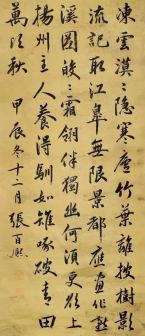 凍雲漠漠隱寒廬竹葉離披樹影
疏記取江皋無限景都應畫作
溪圖皎皎霜翎伴獨幽何須更欲上
揚州主人養得馴如雉啄破青田
萬頃秋
甲辰冬十二月 張百熙